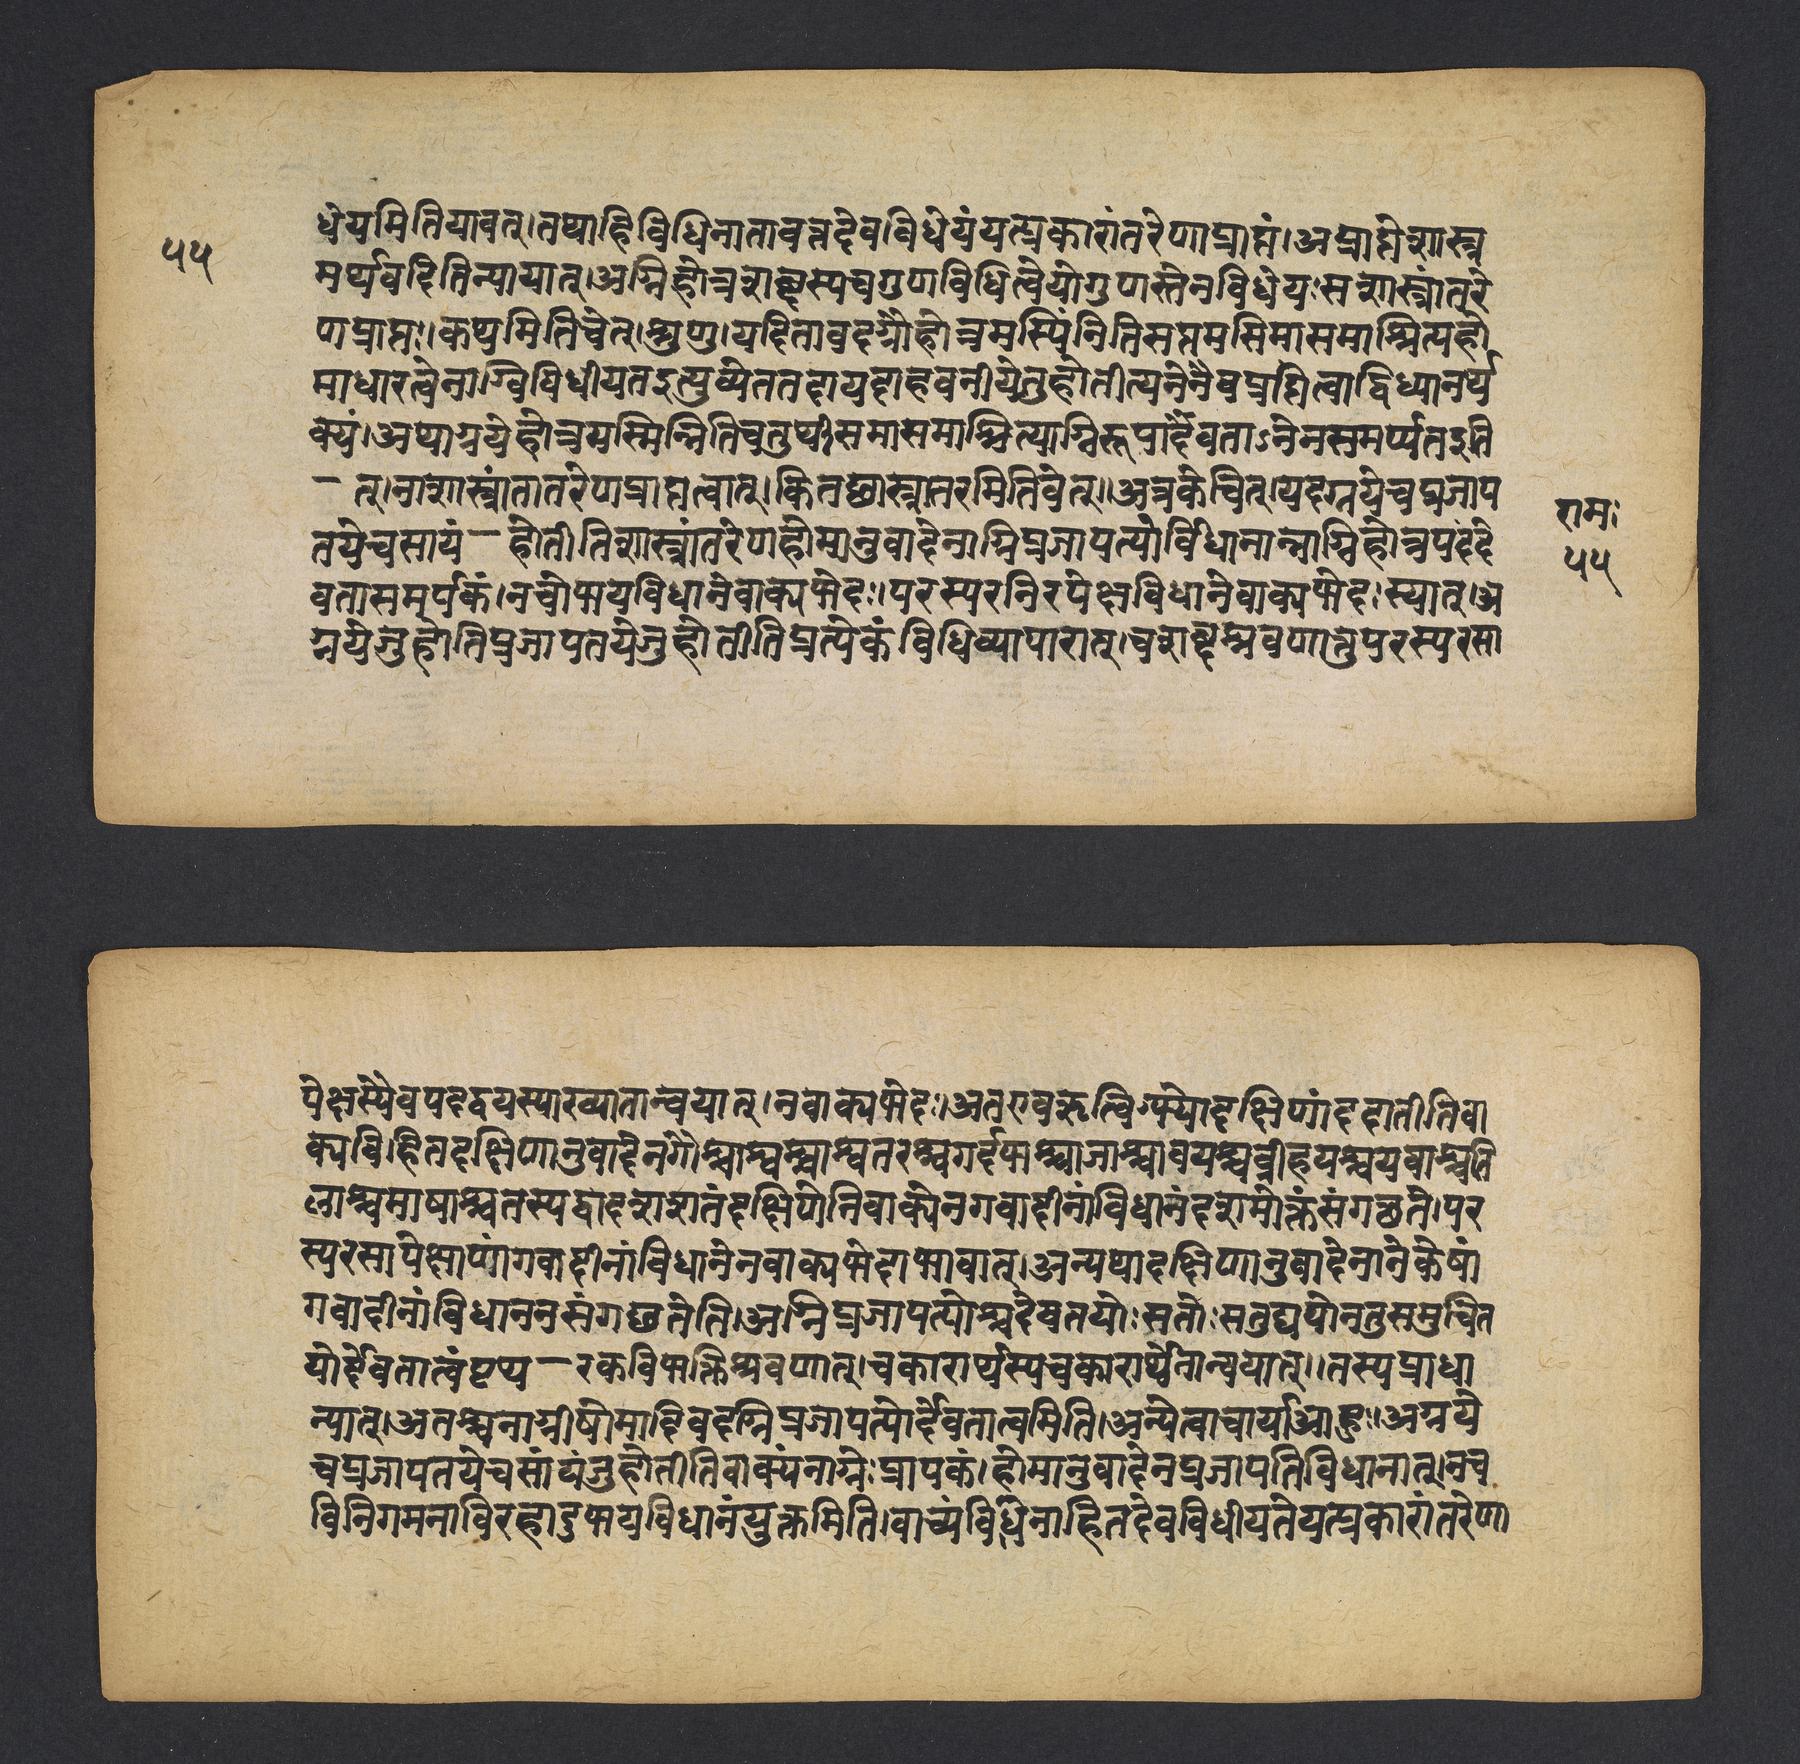 ५५
धेयमितियावत्।तथाहिविधिनातावत्तदेवविधेयंयत्प्रकारांतरेणाप्राप्तं।अप्राप्तेशास्त्र
मर्थवदितिन्यायात्।अग्निहोत्रशब्दस्यचगुणविधित्वेयोगुणस्तेनविधेयःसशास्त्रांतरे
णप्राप्तः।कथमितिचेत्।श्रुणु।यदितावदग्नौहोत्रमस्मिंनितिसप्तमसिमासमाश्रित्यहो
माधारत्वेनाग्निविधीयतइत्युच्येततदायदाहवनीयेतुहोतीत्यनेनैवप्राप्तित्वाद्विध्यानर्थ
क्यं।अथाग्नयेहोत्रमस्मिन्नितिचतुर्थीसमासमाश्रित्याग्निरूपार्देवताऽनेनसमर्प्यतइति
– त्।नाशास्त्रांतातरेणप्राप्तत्वात्।किंतछास्त्रातरमितिचेत्॥अत्रकेचित्।यदग्नयेचप्रजाप
तयेचसायं – होतीतिशास्त्रांतरेणहोमानुवादेनाग्निप्रजापत्योर्विधानान्नाग्निहोत्रपदंदे
वतासमर्पकं।नचोभयविधानेवाक्यभेदः।परस्परनिरपेक्षविधानेवाक्यभेदःस्यात्।अ
ग्नयेजुहोतिप्रजापतयेजुहोतीतिप्रत्येकंविधिव्यापारात्।चशब्दश्रवणात्तुपरस्परसा
रामः
५५
पेक्षस्यैवपदद्वयस्पारख्यातान्वयात्।नवाक्यभेदः।अतएवऋत्विग्भ्योदक्षिणांददातीतिवा
क्यविहितदक्षिणानुवादेनगौश्चाश्वश्चाश्वतरश्चगर्दभाश्चाजाश्चावयश्चव्रीहयश्चयवाश्चति
लाश्चमाषाश्चतस्यद्वादशशतंदक्षिणेतिवाक्येनगवादीनांविधानंदशमोक्तंसंगछते।पर
स्परसापेक्षाणांगवादीनांविधानेनवाक्यभेदाभावात्।अन्यथादक्षिणानुवादेनानेकेषां
गवादीनांविधाननसंगछतेति।अग्निप्रजापत्योश्चदेवतयोःसतोःसतुद्यपोनतुसमुचित
योर्देवतात्वंपृथ – रकविभक्तिश्रवणात्।चकारार्थस्यचकारार्थेनान्वयात्॥तस्यप्राधा
न्यात्।अतश्चनाग्नीषोमादिवदग्निप्रजापत्योर्देवतात्वमिति।अन्येत्वाचार्याआहुः।अग्नये
चप्रजापतयेचसांयंजुहोतीतिवाक्यंनाग्नेःप्रापकं।होमानुवादेनप्रजापतिविधानात्।नच
विनिगमनाविरहादुभयविधानंयुक्तमिति।वाच्यंविधिनाहितदेवविधीयतेयत्प्रकारांतरेणा